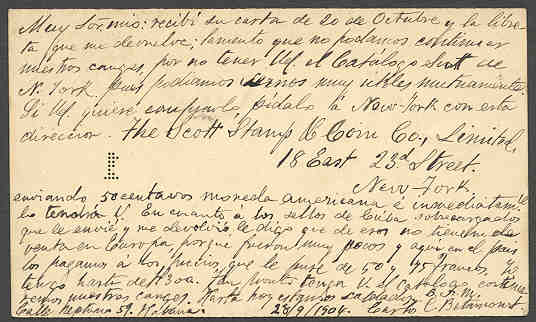 Muy Sor. mio: recibí su carta de 20 de Octubre y la libre-
ta que me devuelve; lamento que no podamos continuar
nuestros canges, por no tener Ud. el Catálogo Scott de
N. York, pues podiamos sernos muy utiles mutuamente.
Si Ud. quiere comprarlo, pidalo á New-York con esta
direccion. The Scott Stamp & Coin Co, Limited,
18 East 23d Street.
New-York
enviando 50 centavos moneda americana é inmediatamte
lo tendrá V. En cuanto á los sellos de Cuba sobrecargados
que le envié y me devolvió, le digo que de esos no tienen de
venta en Europa, porque fueron muy pocos y aqui en el pais
los pagamos á los precios que le puse de 50 y 75 francos,
tengo hasta de 300. Tan pronto tenga V. el catálogo
remos nuestros canges. Hasta hoy estamos saldados. B. S. M.
Calle Neptuno 57. Habana. 28/9/1904. Carlo C. Betancourt.